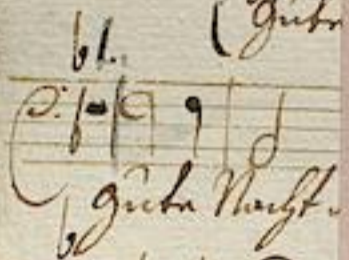 (Gute
Gute Nacht.